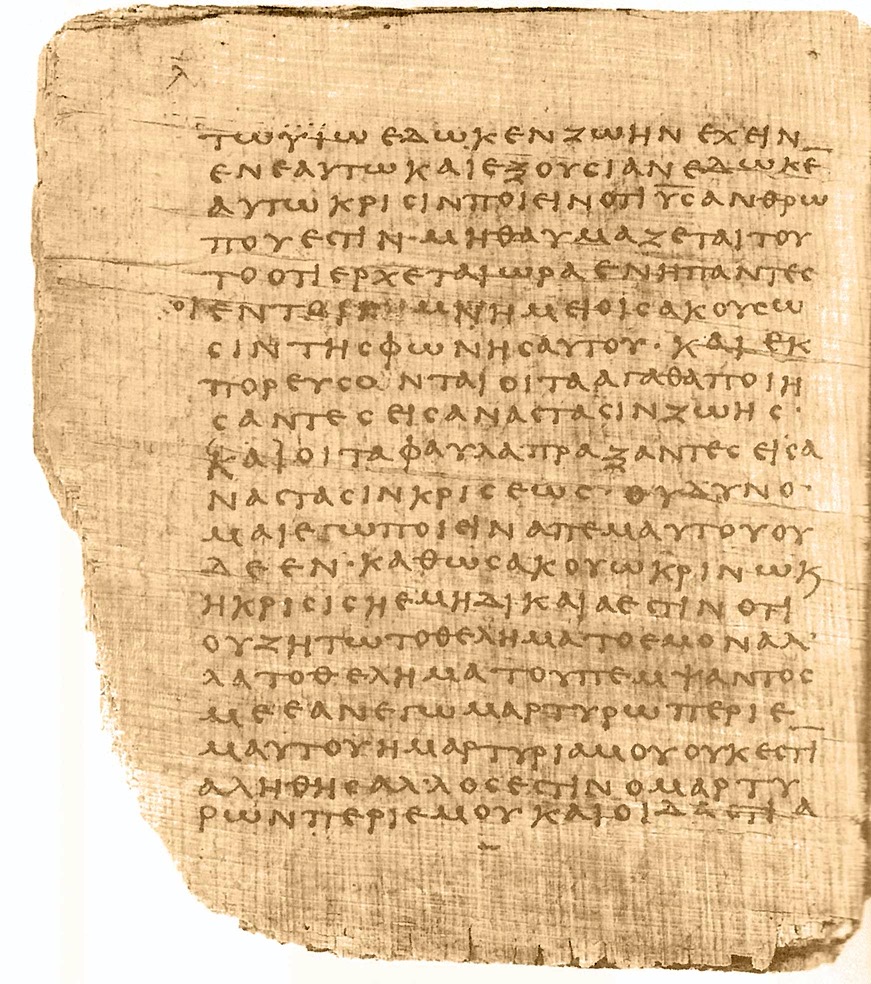 λ
ΤΩΫΪΩ ΕΔΩΚΕΝ ΖΩΗΝ ΕΧΕΙΝ
ΕΝΕΑΥΤΩ ΚΑΙΕΞΟΥCΙΑΝ ΕΔΩΚΕ̅
ΑΥΤΩ ΚΡΙCΙΝΠΟΙΕΙΝΟΤΙ Υ̅C̅ΑΝΘΡΩ
ΠΟΥΕCΤΙΝ·ΜΗΘΑΥΜΑΖΕΤΑΙΤΟΥ
ΤΟΟΤΙΕΡΧΕΤΑΙΩΡΑ ΕΝΗΠΑΝΤΕC
ΟΙΕΝΤ ΜΝΗΜΕΙΟΙCΑΚΟΥCΩ
CΙΝΤΗCΦΩΝΗCΑΥΤΟΥ·ΚΑΙ ΕΚ
ΠΟΡΕΥCΟΝΤΑΙ ΟΙΤΑΑΓΑΘΑΠΟΙΗ
CΑΝΤΕC ΕΙCΑΝΑCΤΑCΙΝΖΩΗC·
ΚΑΙΟΙΤΑΦΑΥΛΑΠΡΑΞΑΝΤΕC ΕΙCΑ
ΝΑCΤΑCΙΝΚΡΙCΕΩC·ΟΥΔΥΝΟ·
ΜΑΙΕΓΩΠΟΙΕΙΝ ΑΠΕΜΑΥΤΟΥΟΥ
ΔΕΕΝ·ΚΑΘΩCΑΚΟΥΩΚΡΙΝΩΚ
ΗΚΡΙCΙCΗΕΜΗΔΙΚΑΙΑΕCΤΙΝ ΟΤΙ
ΟΥΖΗΤΩΤΟΘΕΛΗΜΑΤΟΕΜΟΝΑΛ'
ΛΑΤΟΘΕΛΗΜΑΤΟΥΠΕΜΨΑΝΤΟC
ΜΕΕΑΝΕΓΩΜΑΡΤΥΡΩΠΕΡΙΕ
ΜΑΥΤΟΥΗΜΑΡΤΥΡΙΑΜΟΥΟΥΚΕCΤΙ̅
ΑΛΗΘΗCΑΛ'ΛΟCΕCΤΙΝΟΜΑΡΤΥ
ΡΩΝΠΕΡΙΕΜΟΥΚΑΙΟΙΔΑΟΤΙΑ